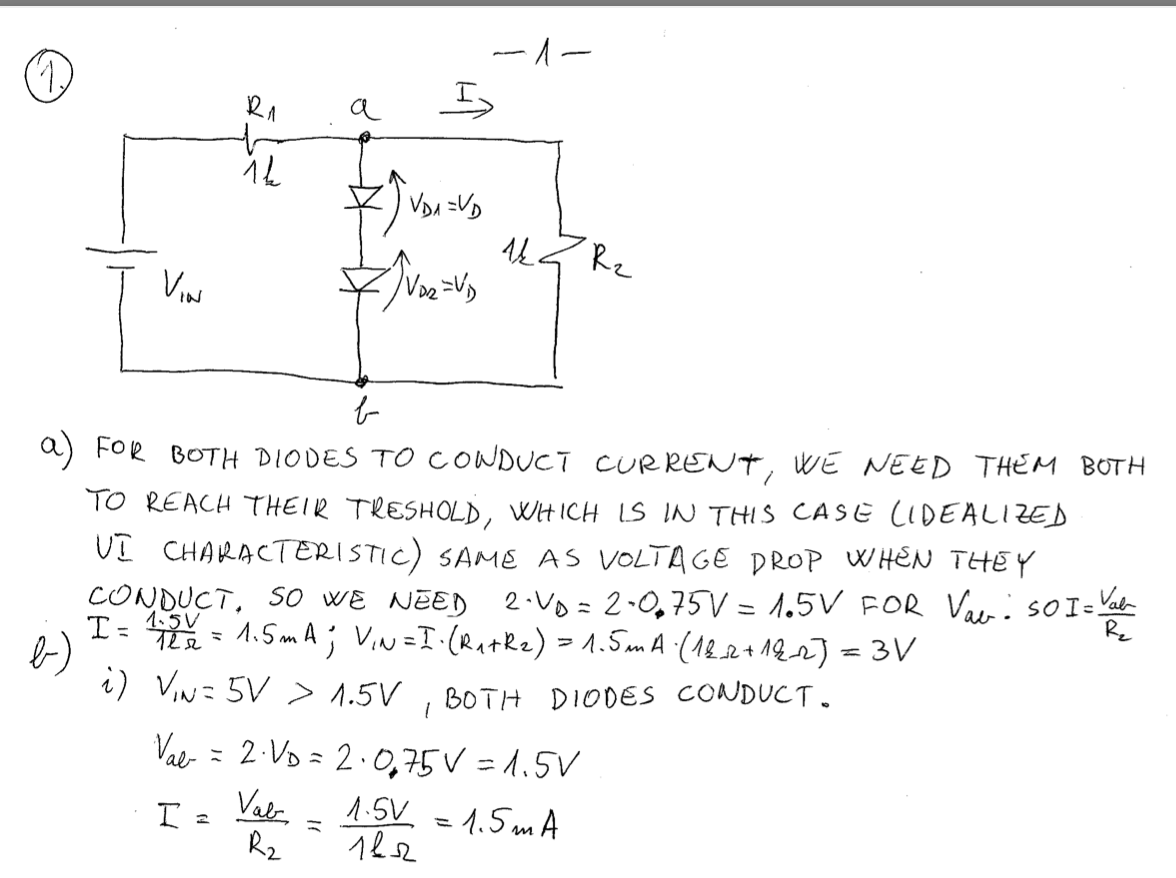 - 1 -
1.
R1 a I
1k
VD1 = VD
1k R2
VIN VD2 = VD
b
a) FOR BOTH DIODES TO CONDUCT CURRENT, WE NEED THEM BOTH
TO REACH THEIR TRESHOLD, WHICH IS IN THIS CASE (IDEALIZED
VI CHARACTERISTIC) SAME AS VOLTAGE DROP WHEN THEY
CONDUCT. SO WE NEED 2·VD = 2·0,75V = 1.5V FOR Vab. SO I = Vab/R2
I = 1.5V/1kΩ = 1.5mA; VIN = I·(R1+R2) = 1.5mA·(1kΩ+1kΩ) = 3V
b)
i) VIN = 5V > 1.5V, BOTH DIODES CONDUCT.
Vab = 2·VD = 2·0,75V = 1.5V
I = Vab/R2 = 1.5V/1kΩ = 1.5mA